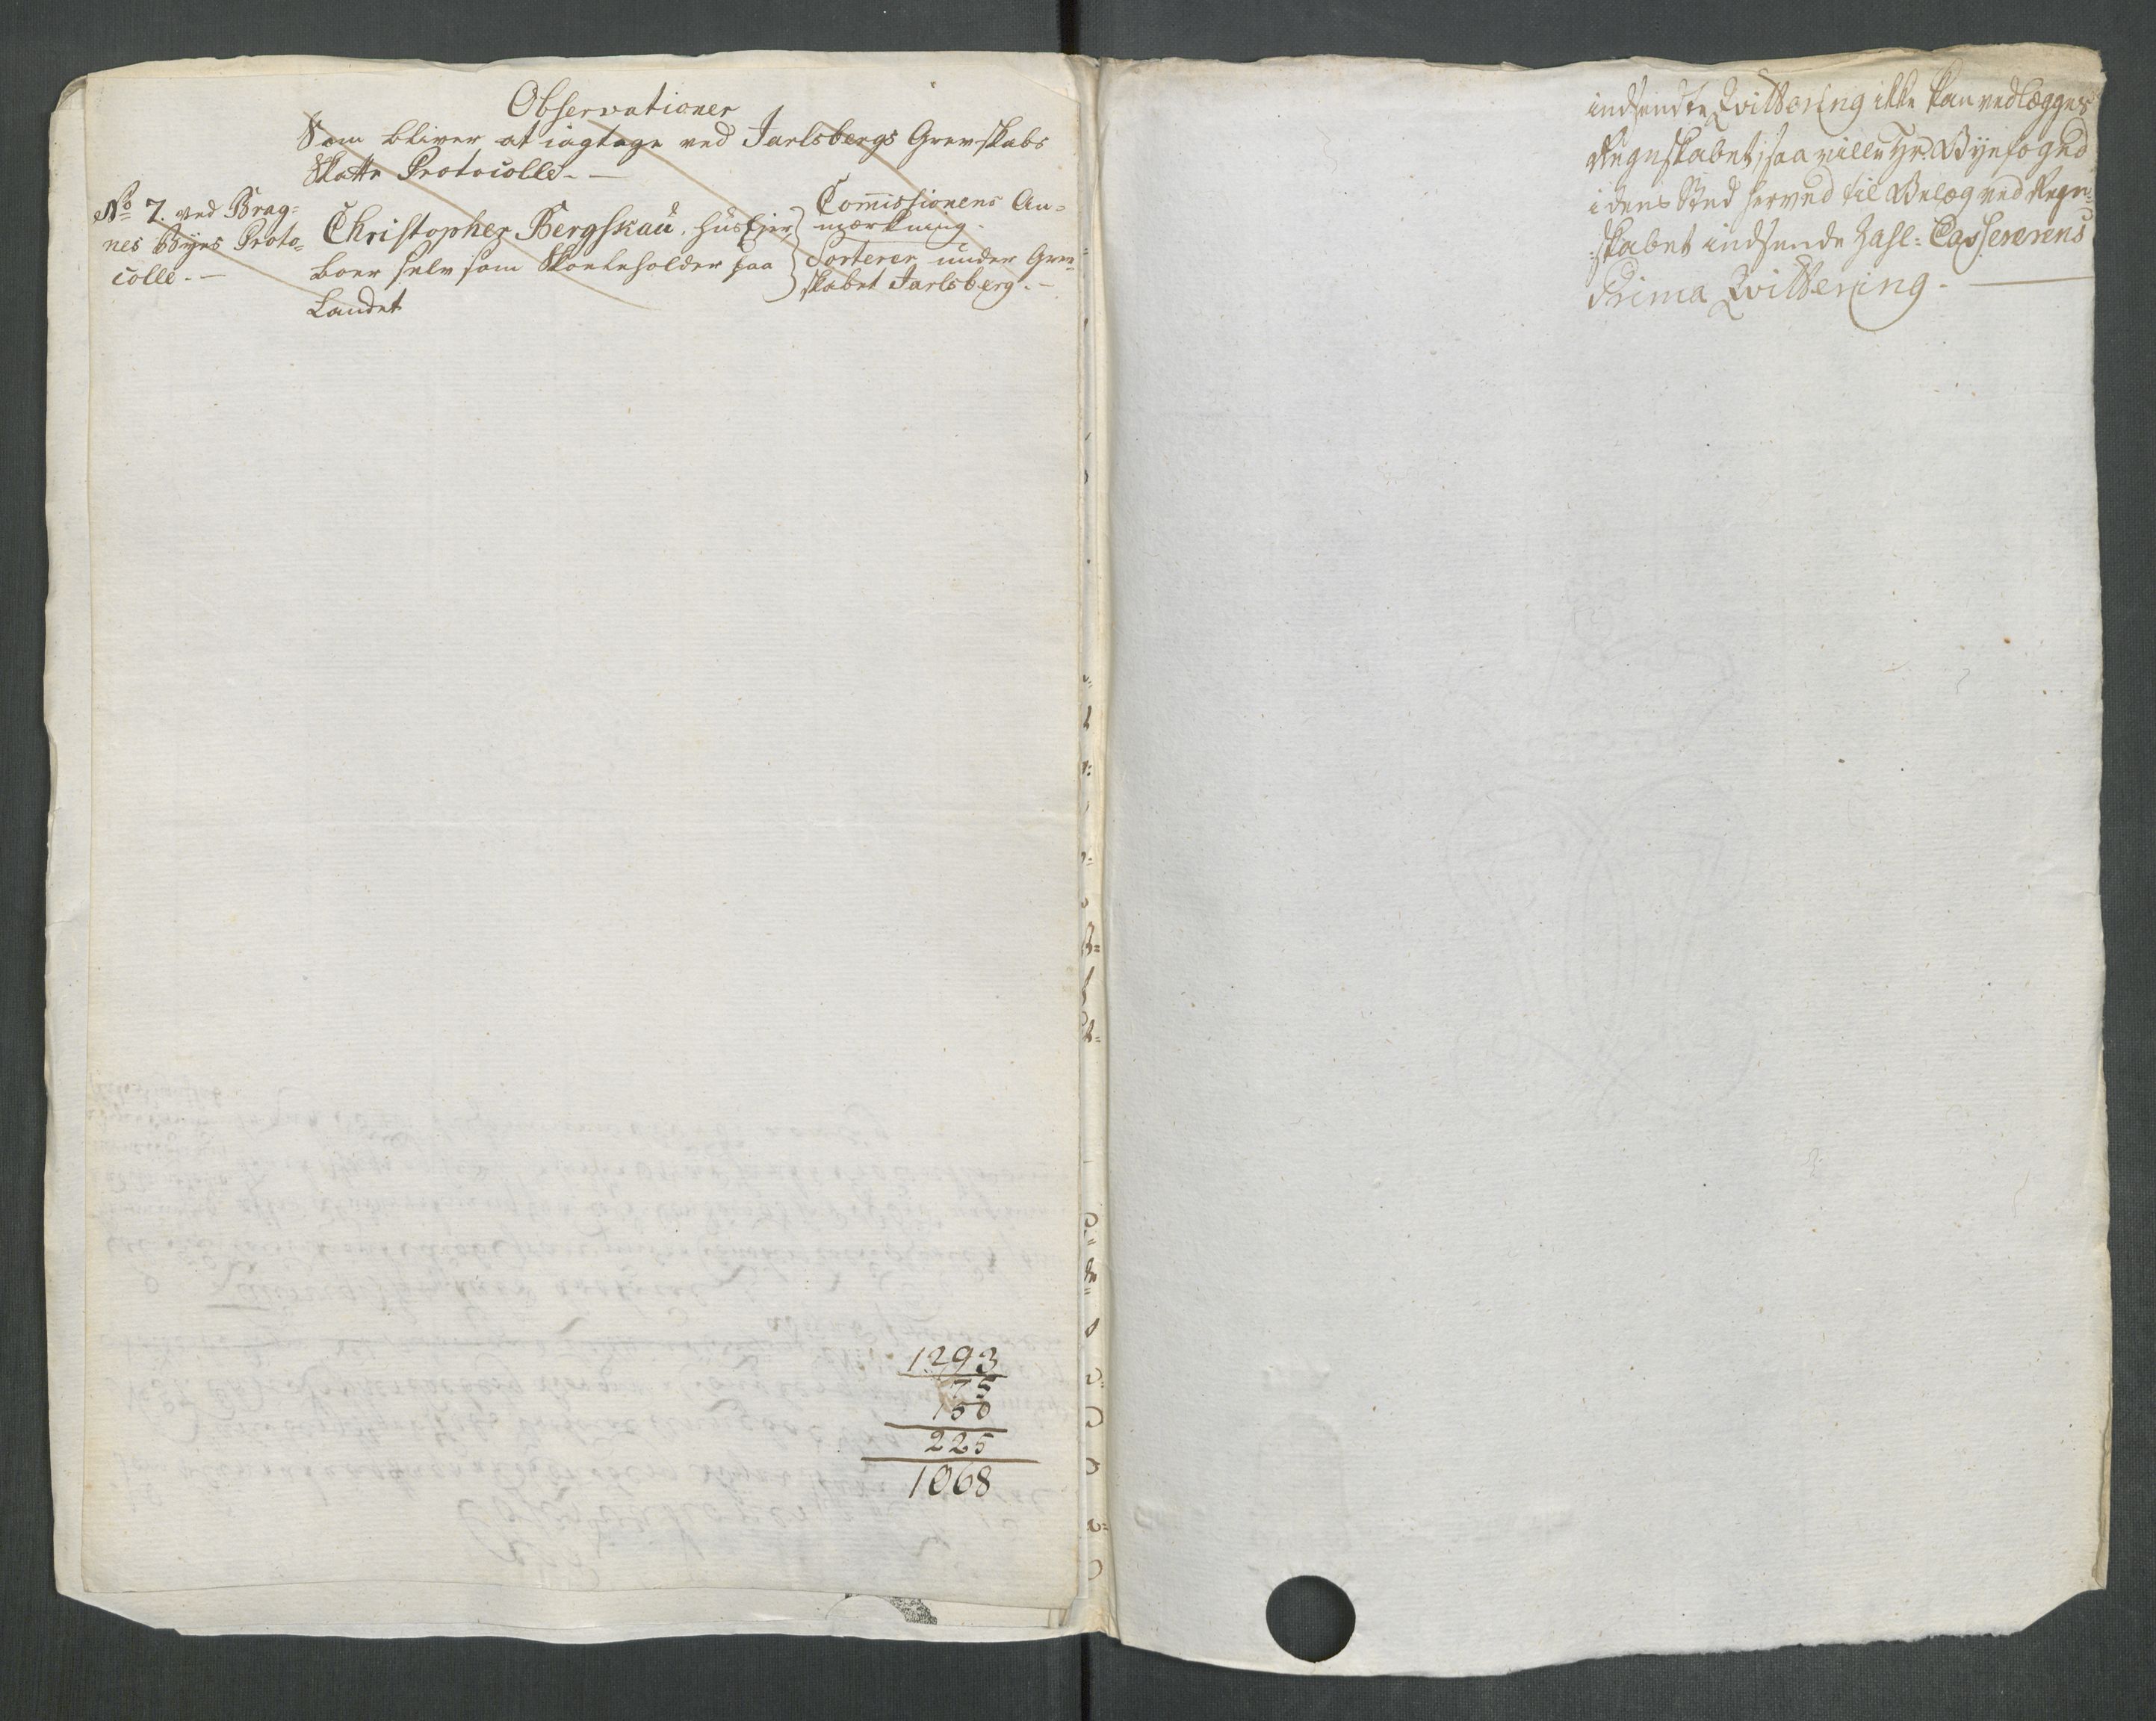 Observationer
Som bliver at iagtage ved Jarlsbergs Grevskabs
Skatte Protocolle. —
No 7. ved Brag-
nes Byes Proto-
colle. —
Christopher Bergskau, huseier
boer selv som Skoeleholder paa
Landet
Commissionens An-
mærkning.
Sorterer under Grev-
skabet Jarlsberg. —
1293
75
150
225
1068
indsendte Qvittering ikke kan vedlægges
Regnskabet, saa ville Hr. Byefoged
i dens Sted herved til Belæg ved Regn-
skabet indsende Zahl: Cassererens
Prima Qvittering. —